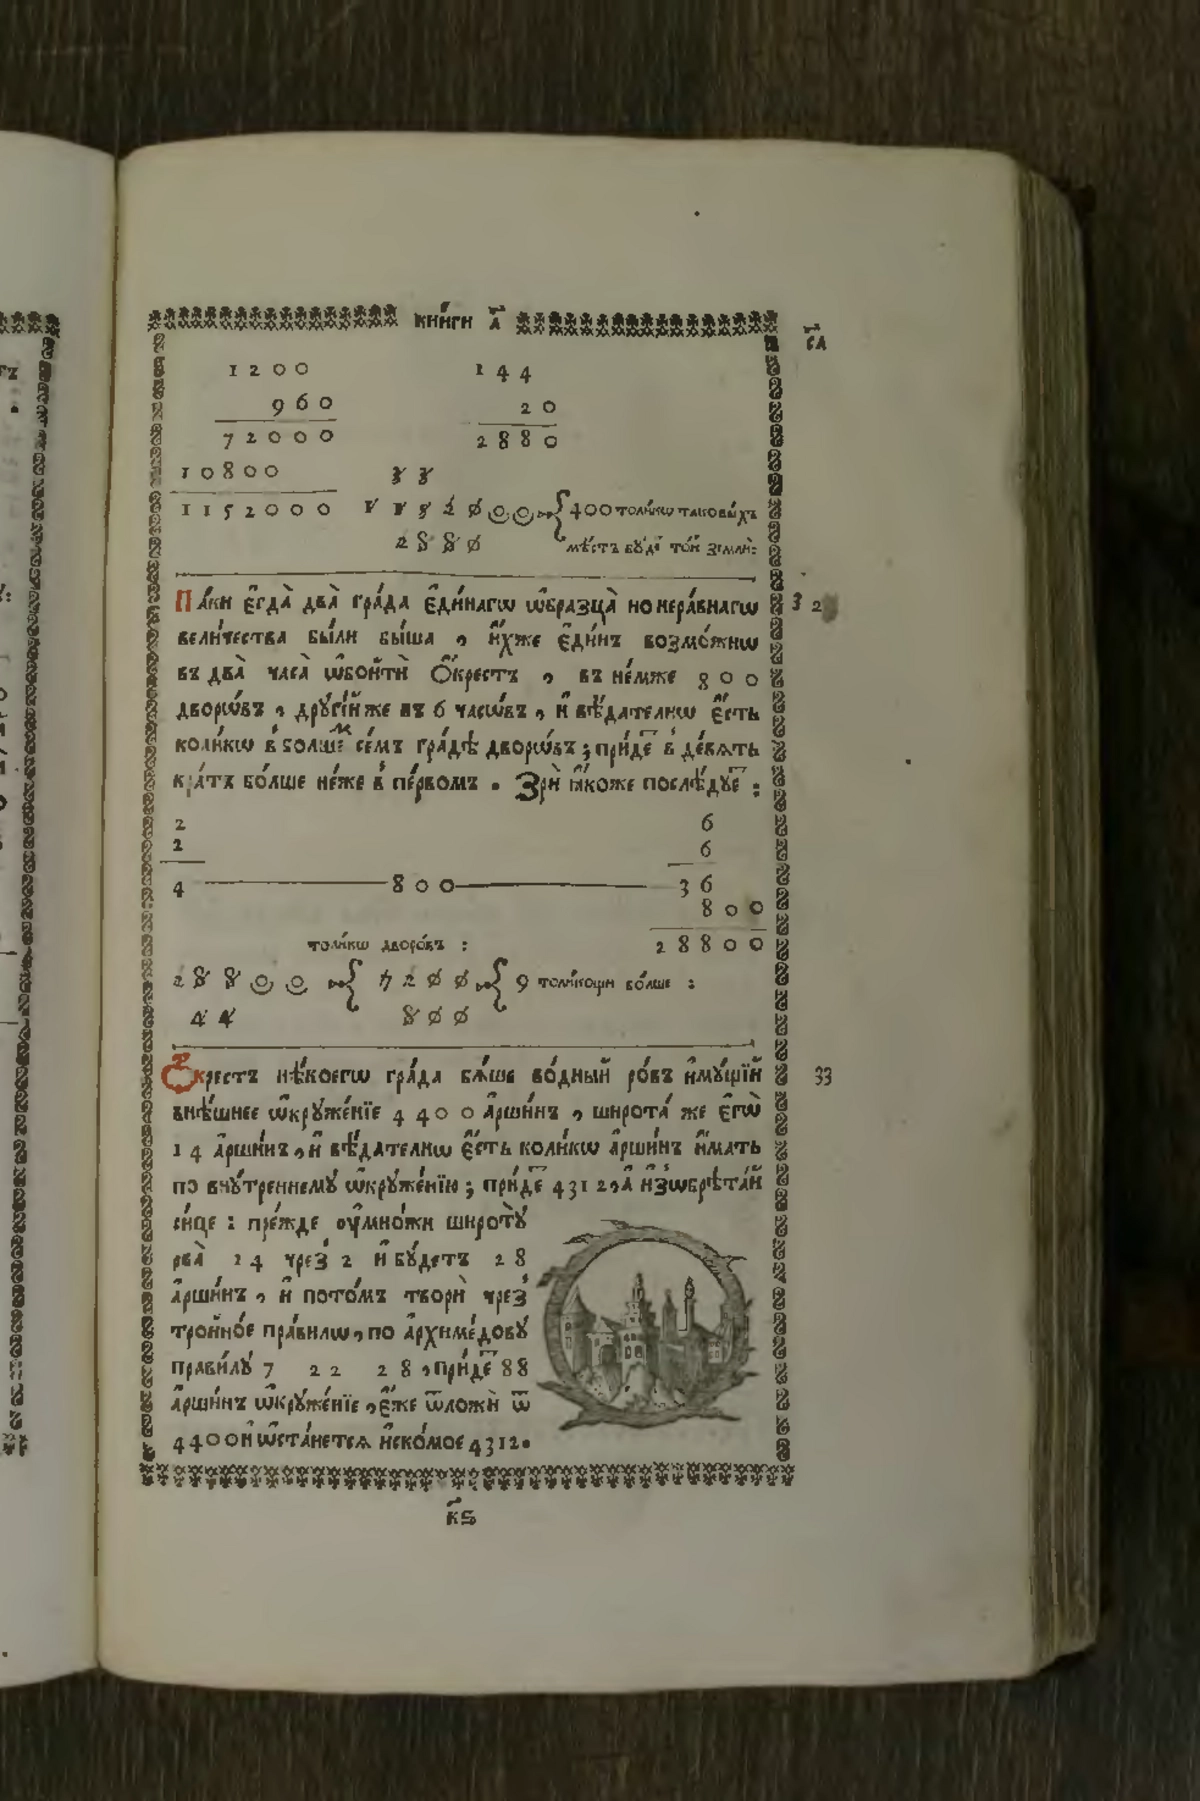 КНИГИ А҃
с҃л
1 2 0 0 1 4 4
9 6 0 2 0
7 2 0 0 0 2 8 8 0
1 0 8 0 0
1 1 5 2 0 0 0 1 1 5 2 0 0 0 { 400 толи́кѡ таковы́хъ
2 8 8 0 мѣ́стъ бꙋ́де то́й землѝ:
Па́ки є҆гда̀ два̀ гра́да є҆ди́нагѡ ѡ҆бразца̀ но нера́внагѡ 32
вели́чества бы́ли бы́ша , и҆́хже є҆ди́нъ возмо́жнѡ
въ два̀ часа̀ ѡ҆бойтѝ Ѻ҆́крестъ , въ не́мже 8 0 0
дворѡ́въ , дрꙋгі́йже въ 6 часѡ́въ , и҆ вѣ́дателнѡ є҆́сть
коли́кѡ в̾ болшем се́мъ гра́дѣ дворѡ́въ ; прі́де в̾ де́вѧть
кра́тъ бо́лше не́же в̾ пе́рвомъ . Зрѝ ꙗ҆́коже послѣ́дꙋе :
2 6
2 6
4 8 0 0 3 6
8 0 0
толи́кѡ дворо́въ : 2 8 8 0 0
2 8 8 0 0 { 7 2 0 0 { 9 толи́кощи бо́лше :
4 4 8 0 0
Ѻ҆́крестъ нѣ́коегѡ гра́да бѧ́ше во́дный ро́въ и҆мꙋ́щїй 33
внѣ́шнее ѡ҆крꙋже́нїе 4 4 0 0 а҆рши́нъ , широта́ же є҆гѡ̀
1 4 а҆рши́нъ , и҆ вѣ́дателнѡ є҆́сть коли́кѡ а҆рши́нъ и҆́мать
по внꙋ́треннемꙋ ѡ҆крꙋже́нїю ; прі́де 4312 , а҆ и҆з̾ѡбрѣта́й
си́це : пре́жде ᲂу҆мно́жи широтꙋ̀
рва̀ 1 4 чрез̾ 2 и҆ бꙋ́детъ 2 8
а҆рши́нъ , и҆ пото́мъ творѝ чрез̾
тройно́е пра́вилѡ , по а҆рхиме́довꙋ
прави́лꙋ 7 2 2 2 8 , прі́де 88
а҆рши́нъ ѡ҆крꙋже́нїе , є҆́же ѿложѝ ѿ
4400 и҆ ѡ҆ста́нетсѧ и҆ско́мое 4312 .
к҃ѕ